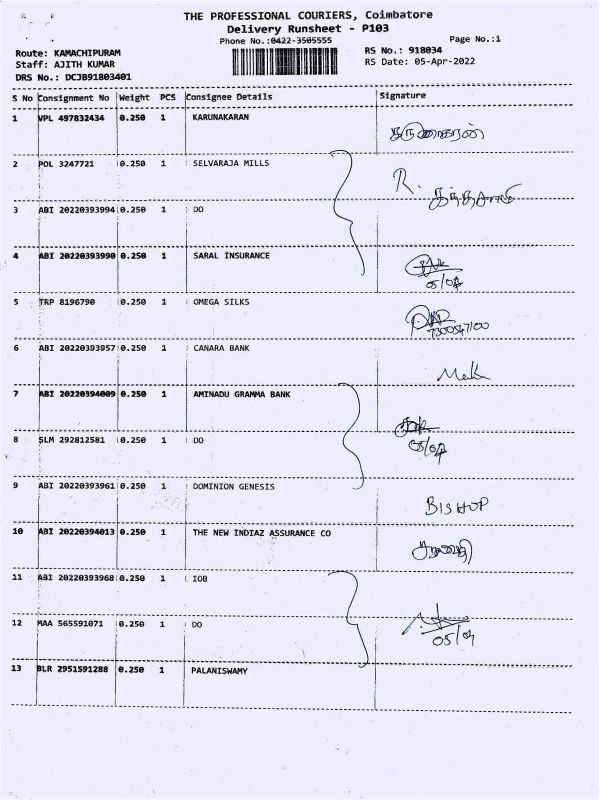 THE PROFESSIONAL COURIERS, Coimbatore
Delivery Runsheet - P103
Phone No.:0422-3505555
Page No.:1
Route: KAMACHIPURAM
RS No.: 918034
Staff: AJITH KUMAR
RS Date: 05-Apr-2022
DRS No.: DCJB91803401
S No Consignment No Weight PCS Consignee Details Signature
1 VPL 497832434 0.250 1 KARUNAKARAN
கருணாகரன்
2 POL 3247721 0.250 1 SELVARAJA MILLS
R.
3 ABI 20220393994 0.250 1 DO
4 ABI 20220393990 0.250 1 SARAL INSURANCE
05/04
5 TRP 8196790 0.250 1 OMEGA SILKS
6 ABI 20220393957 0.250 1 CANARA BANK
7 ABI 20220394009 0.250 1 AMINADU GRAMMA BANK
8 SLM 292812581 0.250 1 DO
05/04
9 ABI 20220393961 0.250 1 DOMINION GENESIS
BISHOP
10 ABI 20220394013 0.250 1 THE NEW INDIAZ ASSURANCE CO
11 ABI 20220393968 0.250 1 IOB
12 MAA 565591071 0.250 1 DO
05/04
13 BLR 2951591288 0.250 1 PALANISWAMY